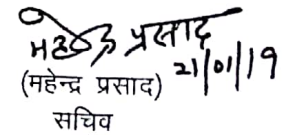 महेन्द्र प्रसाद
21/01/19
(महेन्द्र प्रसाद)
सचिव